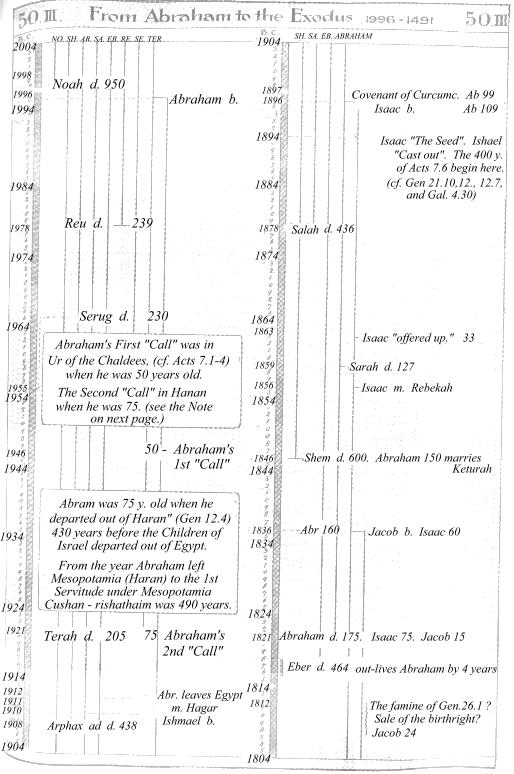 50 III. From Abraham to the Exodus 1996-1491 50 III
B.C. NO. SH. AR. SA. EB. RE. SE. TER
2004
1998 Noah d. 950
1996 Abraham b.
1994
1984
1978 Reu d. 239
1974
Serug d. 230
1964
Abraham's First "Call" was in
Ur of the Chaldees, (cf. Acts 7.1-4)
when he was 50 years old.
The Second "Call" in Hanan
when he was 75. (see the Note
on next page.)
1955
1954
50 - Abraham's
1st "Call"
1946
1944
Abram was 75 y. old when he
departed out of Haran" (Gen 12.4)
430 years before the Children of
Israel departed out of Egypt.
From the year Abraham left
Mesopotamia (Haran) to the 1st
Servitude under Mesopotamia
Cushan - rishathaim was 490 years.
1934
1924
1921 Terah d. 205 75 Abraham's
2nd "Call"
1914
1912 Abr. leaves Egypt
1911 m. Hagar
1910 Ishmael b.
1908 Arphax ad d. 438
1904
B.C. SH. SA. EB. ABRAHAM
1904
1897 Covenant of Curcumc. Ab 99
1896 Isaac b. Ab 109
1894
Isaac "The Seed". Ishael
"Cast out". The 400 y.
of Acts 7.6 begin here.
(cf. Gen 21.10,12., 12.7,
and Gal. 4.30)
1884
1878 Salah d. 436
1874
1864
1863 Isaac "offered up." 33
1859 Sarah d. 127
1856 Isaac m. Rebekah
1854
1846 Shem d. 600. Abraham 150 marries
Keturah
1844
1836 Abr 160 Jacob b. Isaac 60
1834
1824
1821 Abraham d. 175. Isaac 75. Jacob 15
Eber d. 464 out-lives Abraham by 4 years
1814
1812 The famine of Gen.26.1 ?
Sale of the birthright?
Jacob 24
1804